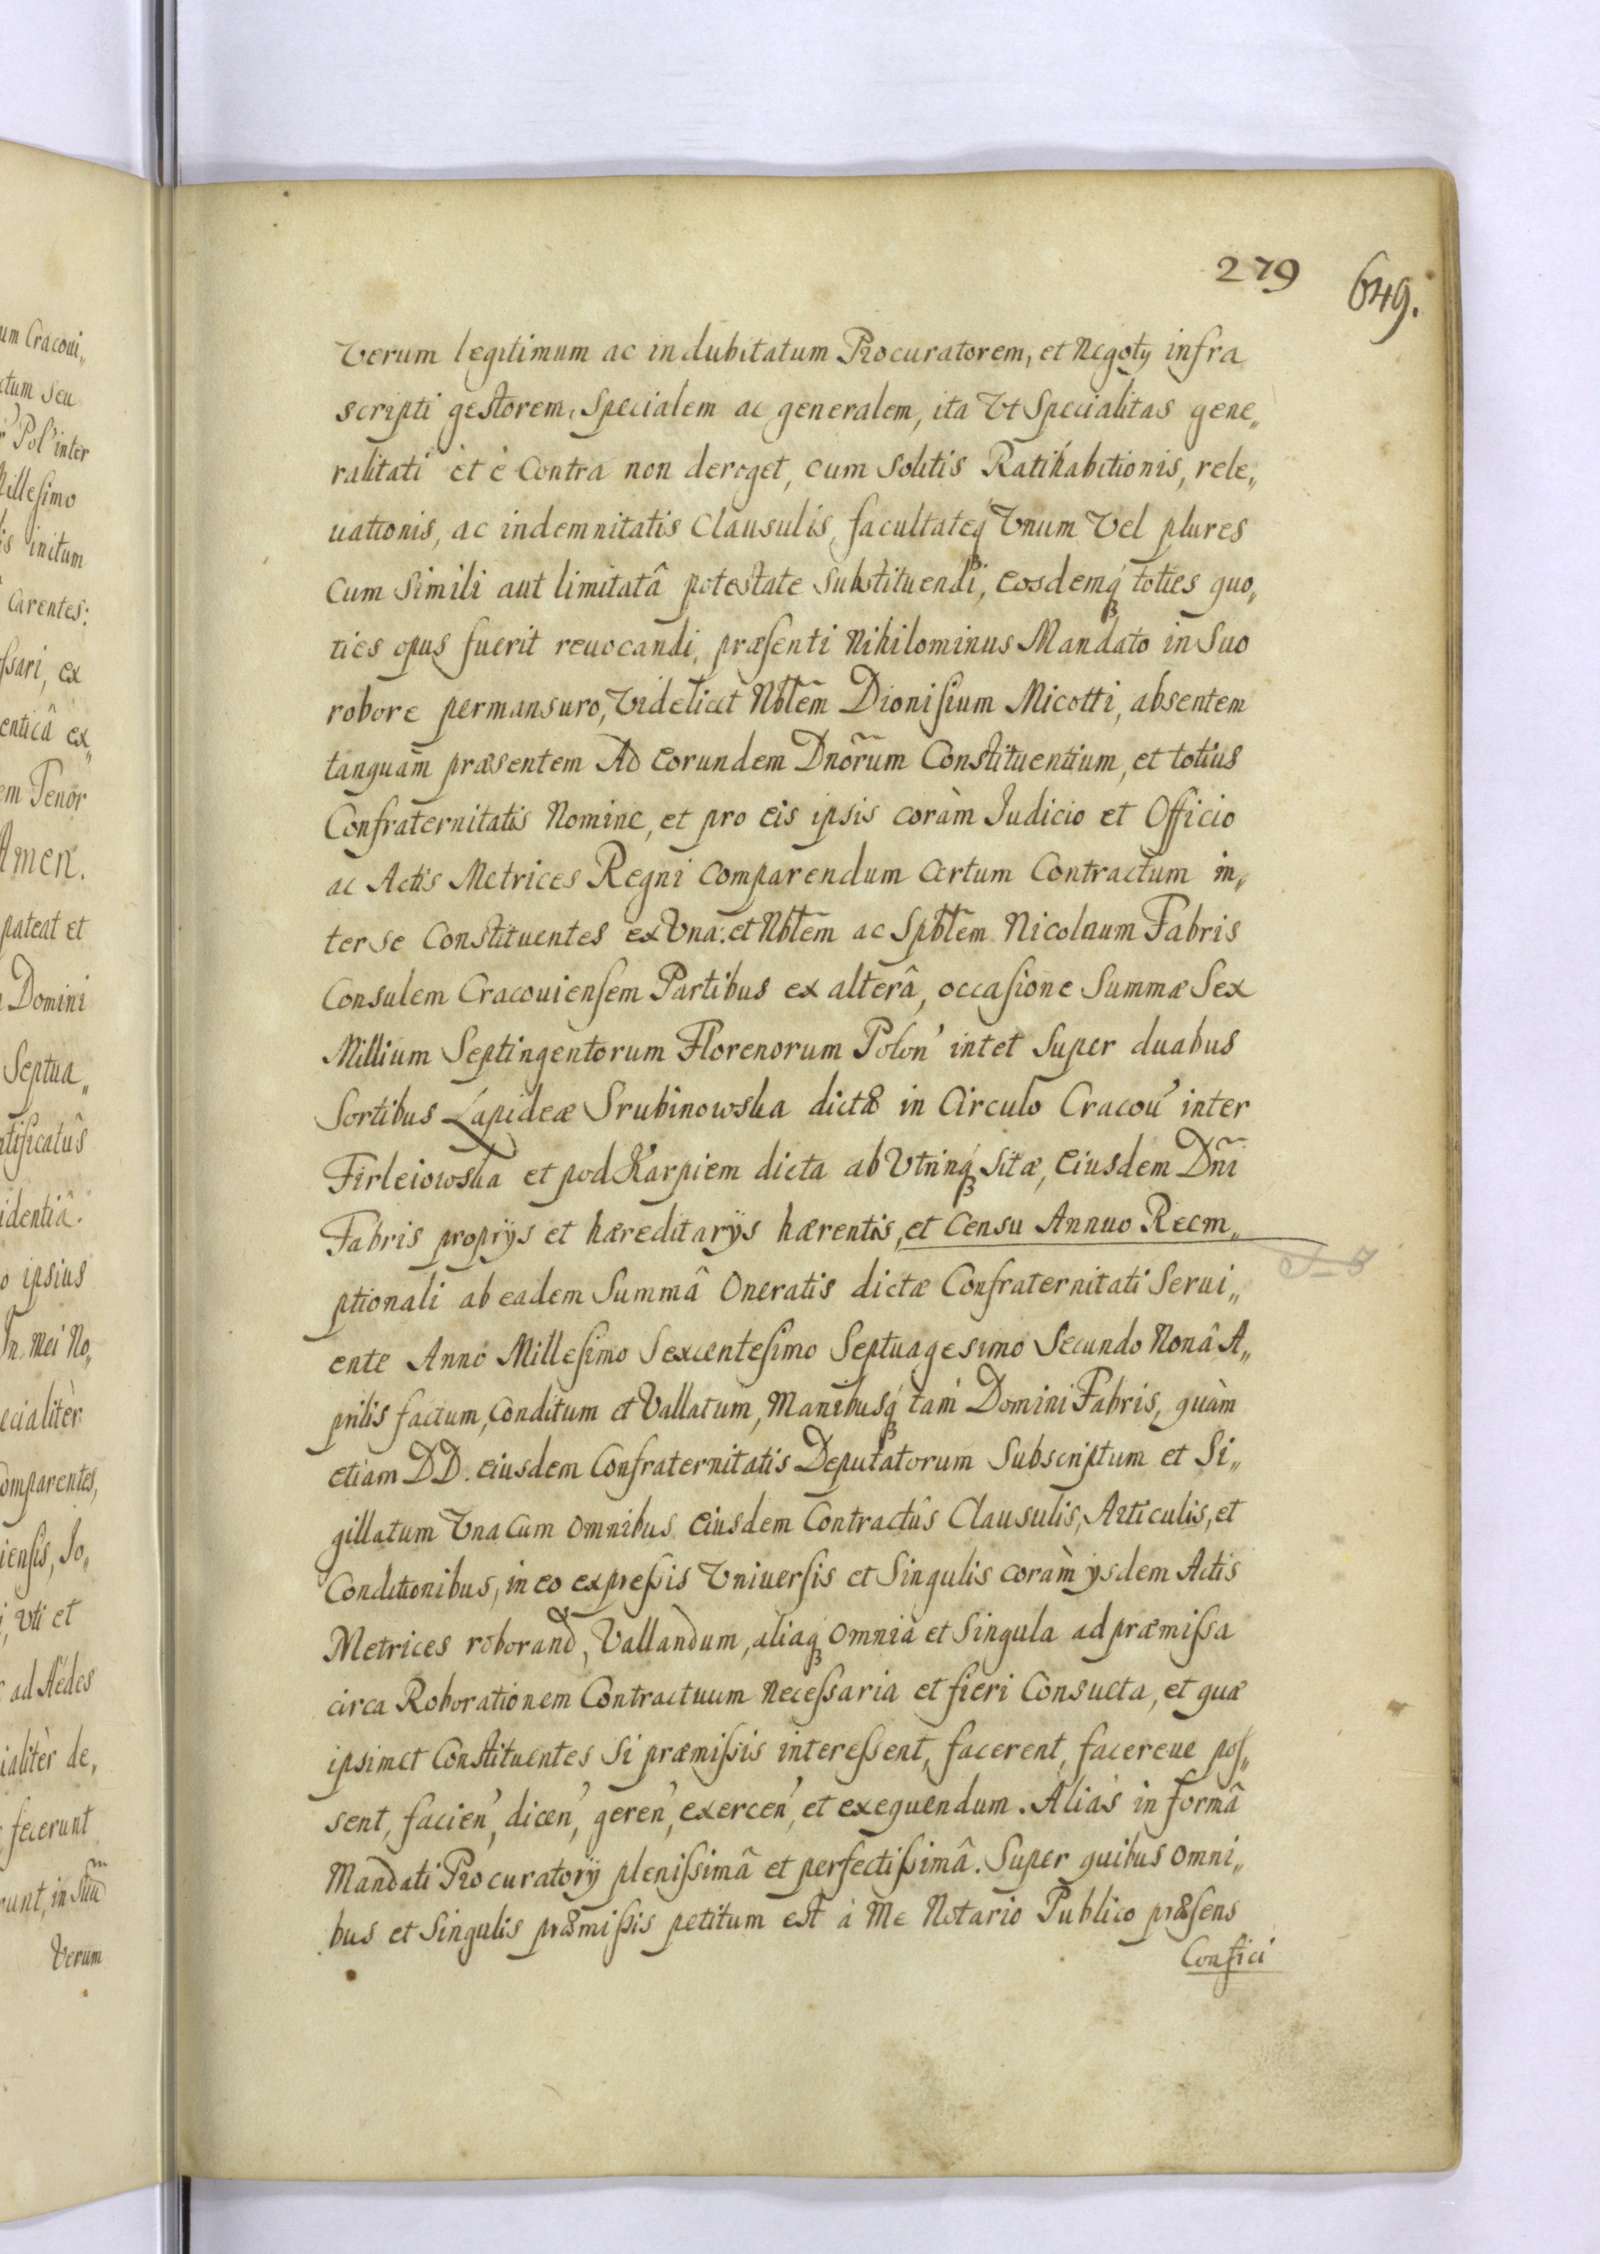 279
649.
Verum legitimum ac indubitatum Procuratorem, et Negotÿ infra
scripti gestorem, Specialem ac generalem, ita Vt Specialitas gene„
ralitati et è Contra non deroget, cum Solitis Ratihabitionis, rele„
uationis, ac indemnitatis Clausulis, facultateq́ Vnum Vel plures
Cum Simili aut limitatâ potestate substituendi, Eosdemq́ toties quo„
ties opus fuerit reuocandi, præsenti Nihilominus Mandato in Suo
robore permansuro, Videlicet Nbl̃em Dionisium Micotti, absentem
tanquam præsentem Ad Eorundem Dnõrum Constituentium, et totius
Confraternitatis Nomine, et pro Eis ipsis coràm Judicio et Officio
ac Actis Metrices Regni Comparendum Certum Contractum in„
ter se Constituentes ex Vna. et Nbl̃em ac Spbl̃em Nicolaum Fabris
Consulem Cracouiensem Partibus ex alterâ, occasione Summæ Sex
Millium Septingentorum Florenorum Polon' intet Super duabus
Sortibus Lapideæ Srubinowska dictæ in Circulo Cracou' inter
Firleiowska et pod Karpiem dicta ab Vtrinq́ sitæ, Eiusdem Dñi
Fabris proprÿs et hæreditarÿs hærentis, et Censu Annuo Reem„
ptionali ab eadem Summâ Oneratis dictæ Confraternitati Serui„
ente Anno Millesimo Sexcentesimo Septuagesimo Secundo Nonâ A„
prilis factum, Conditum et Vallatum, Manibusq́ tam Domini Fabris, quàm
etiam DD. Eiusdem Confraternitatis Deputatorum Subscriptum et Si„
gillatum Vna Cum Omnibus Eiusdem Contractûs Clausulis, Articulis, et
Conditionibus, in eo expressis Vniuersis et Singulis coràm ÿsdem Actis
Metrices roborand, Vallandum, aliaq́ Omnia et Singula ad præmissa
circa Roborationem Contractuum Necessaria et fieri Consueta, et quæ
ipsimet Constituentes Si præmissis interessent, facerent, facereue pos„
sent, facien', dicen', geren', exercen', et exequendum. Aliàs in formâ
Mandati Procuratorÿ plenissimâ et perfectissimâ. Super quibus Omni„
bus et Singulis præmissis petitum est à Me Notario Publico præsens
Confici
um Cracoui„
ctum Seu
Pol' inter
Millesimo
is initum
Carentes:
ssari, ex
enticâ ex„
em Tenor
Amen.
pateat et
Domini
Septua„
tificatûs
identiâ.
o ipsius
In. Mei No„
ecialitèr
omparentes,
iensis, Jo„
, vti et
ad Ædes
ialitèr de„
fecerunt
runt, in Suũ
Verum